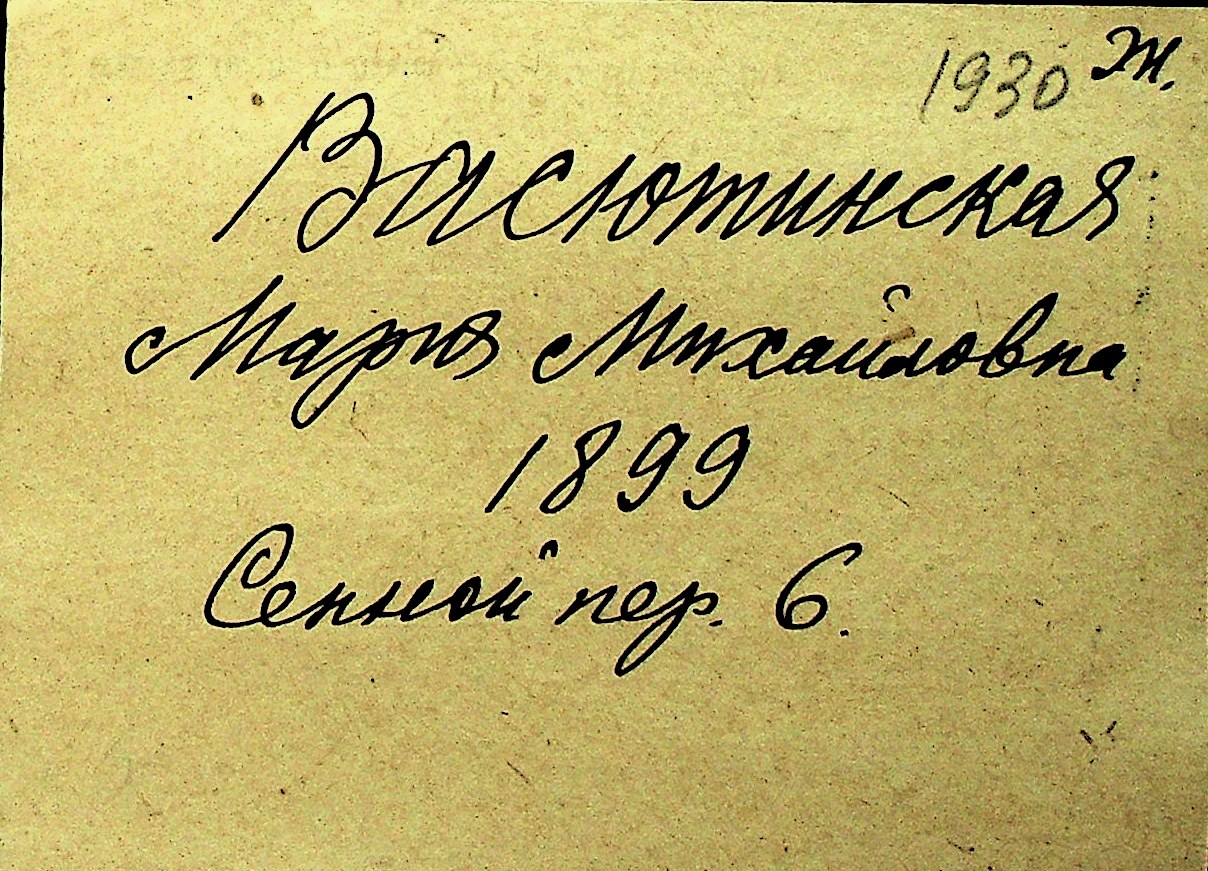 1930 Ж.
Васютинская
Мария Михайловна
1899
Сенной пер. 6.